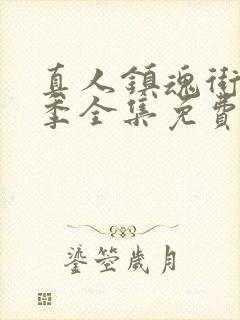 真人鎮魂街
季全集免費
鎏筦歲月